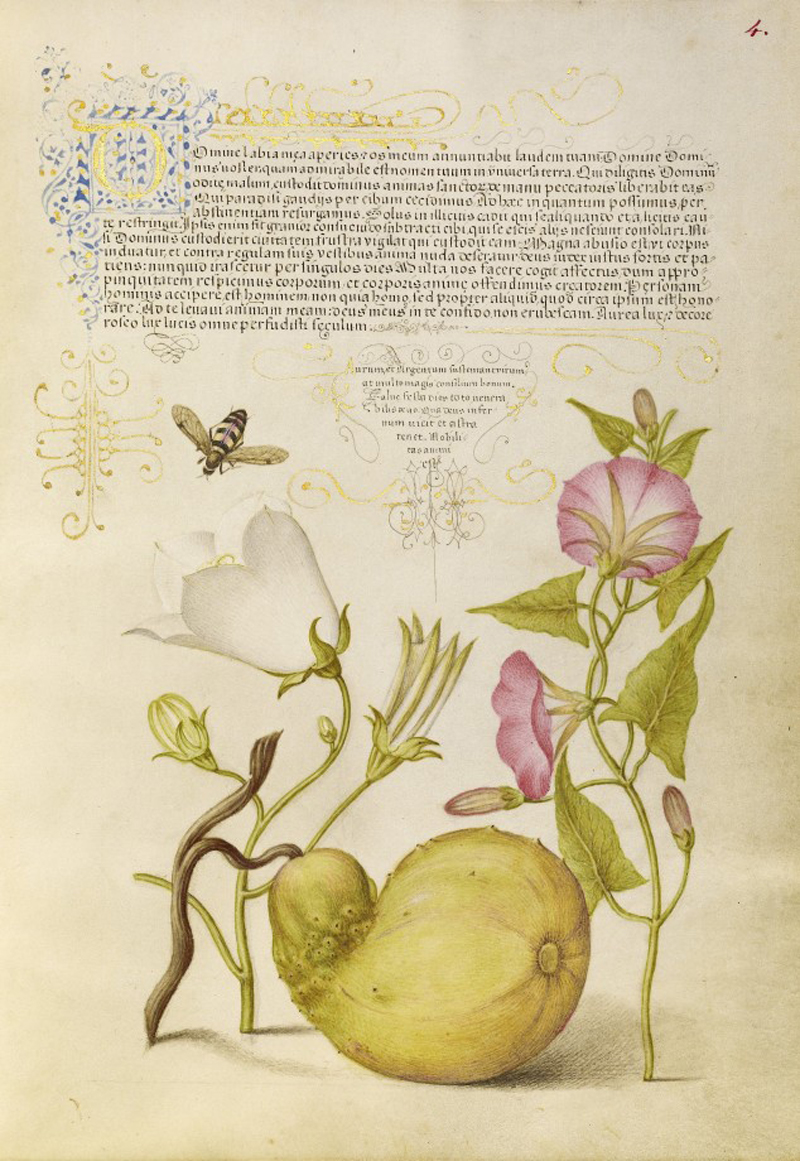 4.
Domine labia mea aperies: os meum annuntiabit laudem tuam. Domine Domi
nus noster quam admirabile est nomen tuum in vniuersa terra. Qui diligitis Dominum
odite malum, custodit dominus animas sanctorum de manu peccatoris liberabit eas
Qui paradisi gaudijs per cibum cecidimus Ad haec in quantum possumus, per
abstinentiam resurgamus. Solus in illicitis cadit qui se aliquando et a licitis cau
te restringit. Ipsis enim fit gramior subtracti cibi, qui se escis alijs nesciunt consolari. Ni
si Dominus custodierit ciuitatem frustra vigilat qui custodit eam. Magna abusio est, vt corpus
induatur, et contra regulam suis vestibus anima nuda deseratur. Deus iudex iustus fortis et pa
tiens: nunquid irascetur per singulos dies Multa nos facere cogit affectus, dum appro
pinquitatem respicimus corporum, et corporis animę offendimus creatorem. Personam
hominis accipere, est hominem, non quia homo, sed propter aliquid, quod circa ipsum est hono
rare. Ad te leuaui animam meam: deus meus in te confido, non erubescam. Aurea luce et decore
roseo lux lucis omne perfudisti seculum.
Aurum, et Argentum sustinent virum,
at multo magis consilium bonum.
Salue festa dies toto venera
bilis aeuo. Qua deus infer
num vicit et astra
tenet. Nobili
tas animi
est